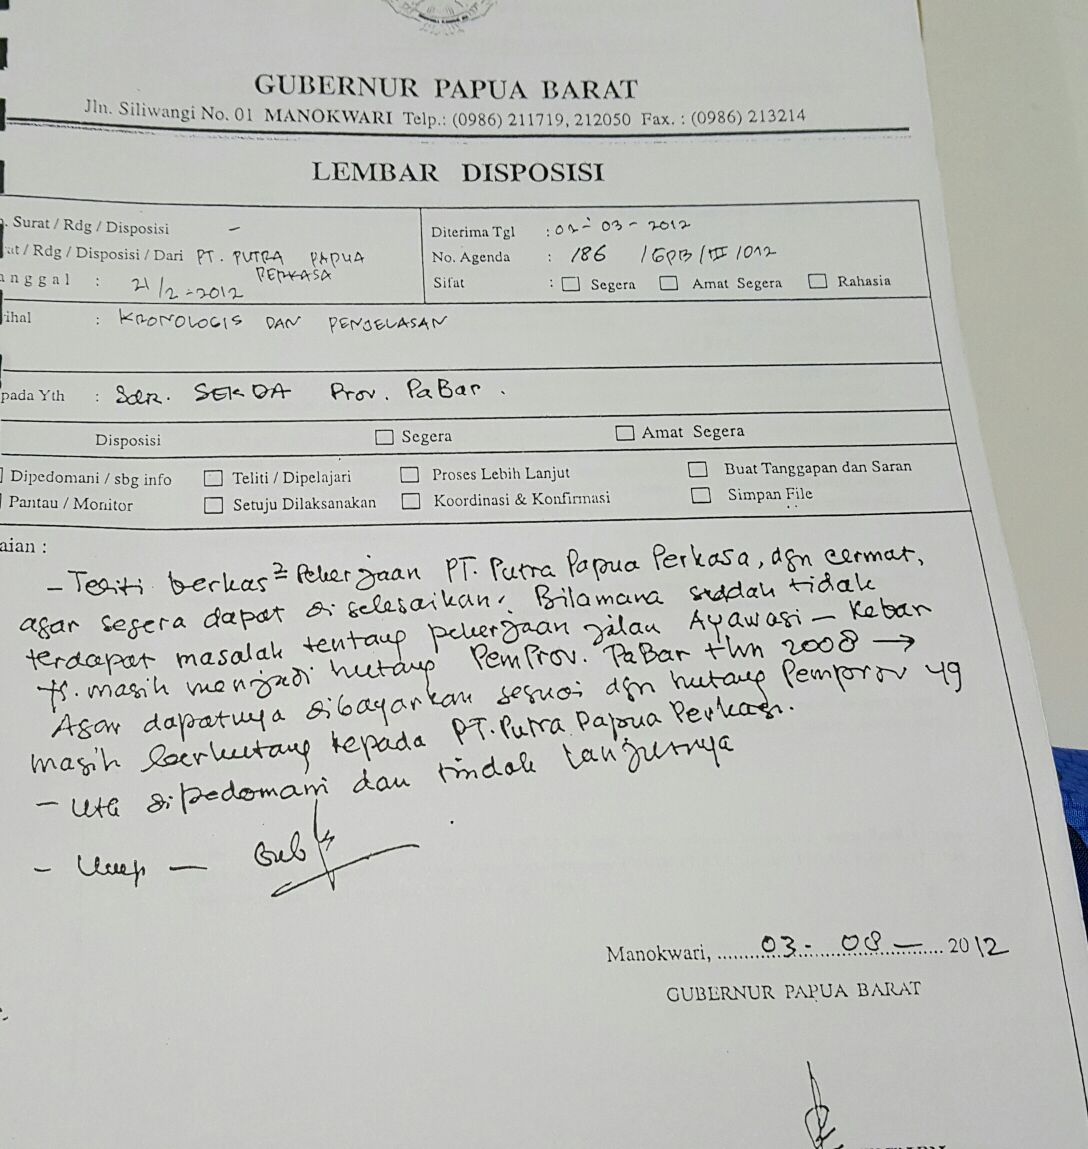 GUBERNUR PAPUA BARAT
Jln. Siliwangi No. 01 MANOKWARI Telp.: (0986) 211719, 212050 Fax. : (0986) 213214
LEMBAR DISPOSISI
. Surat / Rdg / Disposisi -
at / Rdg / Disposisi / Dari PT. PUTRA PAPUA PERKASA
anggal : 21/2-2012
Diterima Tgl : 02-03-2012
No. Agenda : 186 /GPB/III/012
Sifat : Segera Amat Segera Rahasia
ihal : KRONOLOGIS DAN PENJELASAN
pada Yth : Sdr. SEKDA Prov. PaBar.
Disposisi Segera Amat Segera
Dipedomani / sbg info Teliti / Dipelajari Proses Lebih Lanjut Buat Tanggapan dan Saran
Pantau / Monitor Setuju Dilaksanakan Koordinasi & Konfirmasi Simpan File
aian :
- Teliti berkas² Pekerjaan PT. Putra Papua Perkasa, dgn cermat,
agar segera dapat diselesaikan. Bilamana sudah tidak
terdapat masalah tentang pekerjaan jalan Ayawasi - Kebar
masih menjadi hutang PemProv. PaBar thn 2008 →
Agar dapatnya dibayarkan sesuai dgn hutang Pemprov yg
masih berhutang kepada PT. Putra Papua Perkasa.
- Utk dipedomani dan tindak lanjutnya
Manokwari, 03- 08 - 2012
GUBERNUR PAPUA BARAT